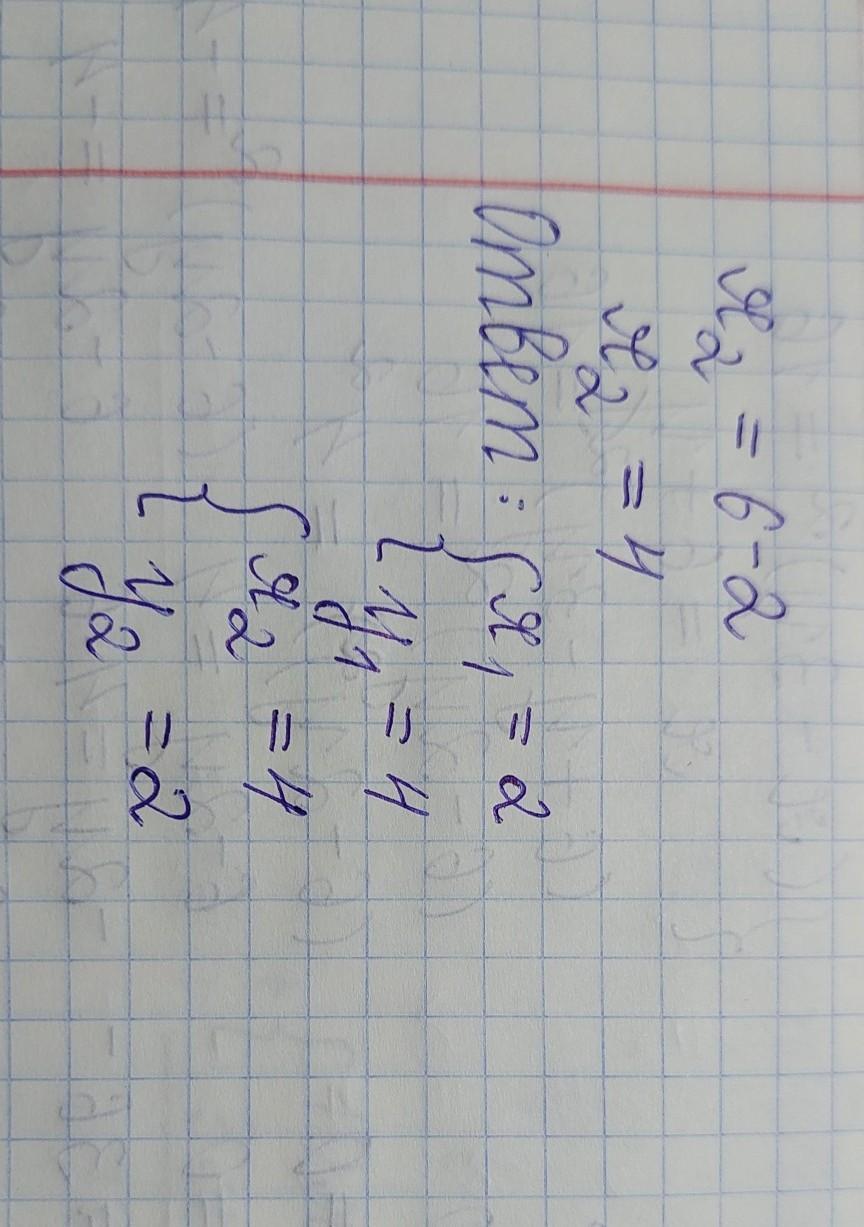 x₂ = 6-2
x₂ = 4
Ответ: { x₁ = 2
y₁ = 4
{ x₂ = 4
y₂ = 2